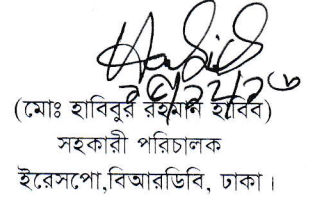 (মোঃ হাবিবুর রহমান হাবিব)
সহকারী পরিচালক
ইরেসপো,বিআরডিবি, ঢাকা।